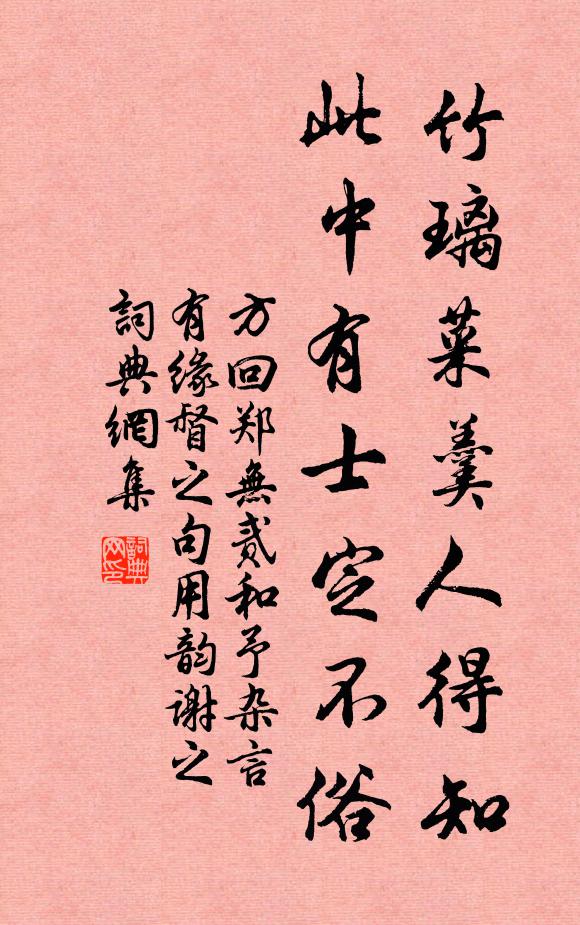 竹璃菜羹人得知
此中有士定不俗
方回郑無貳和予杂言
有缘督之句用韵谢之
詞典網集
詞典
网印